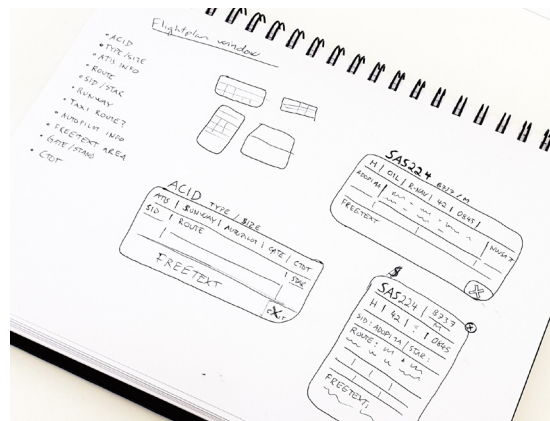 Flightplan window
• ACID
• TYPE/SIZE
• ATIS INFO
• ROUTE
• SID/STAR
• RUNWAY
• TAXI ROUTE?
• AUTOPILOT INFO
• FREETEXT AREA
• GATE/STAND
• CTOT
ACID TYPE/SIZE
ATIS | RUNWAY | AUTOPILOT | GATE | CTOT
SID | ROUTE | STAR
FREETEXT
X
SAS224 B737/M
M | 01L | R-NAV | 42 | 0845 |
FREETEXT
X
SAS224 | B737
M
M | 42 | : | 0845
SID: ADOPI1A | STAR:
ROUTE:
FREETEXT:
X